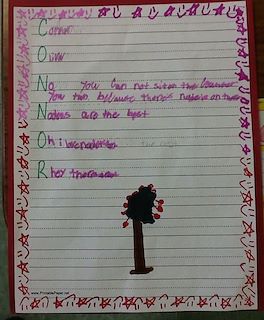 Connor
Oliv
No You can not sit on the Counter
You two, because there's nachos on there
Nachos are the best
Oh i love nachos the
R hey there
www.PrintablePaper.net